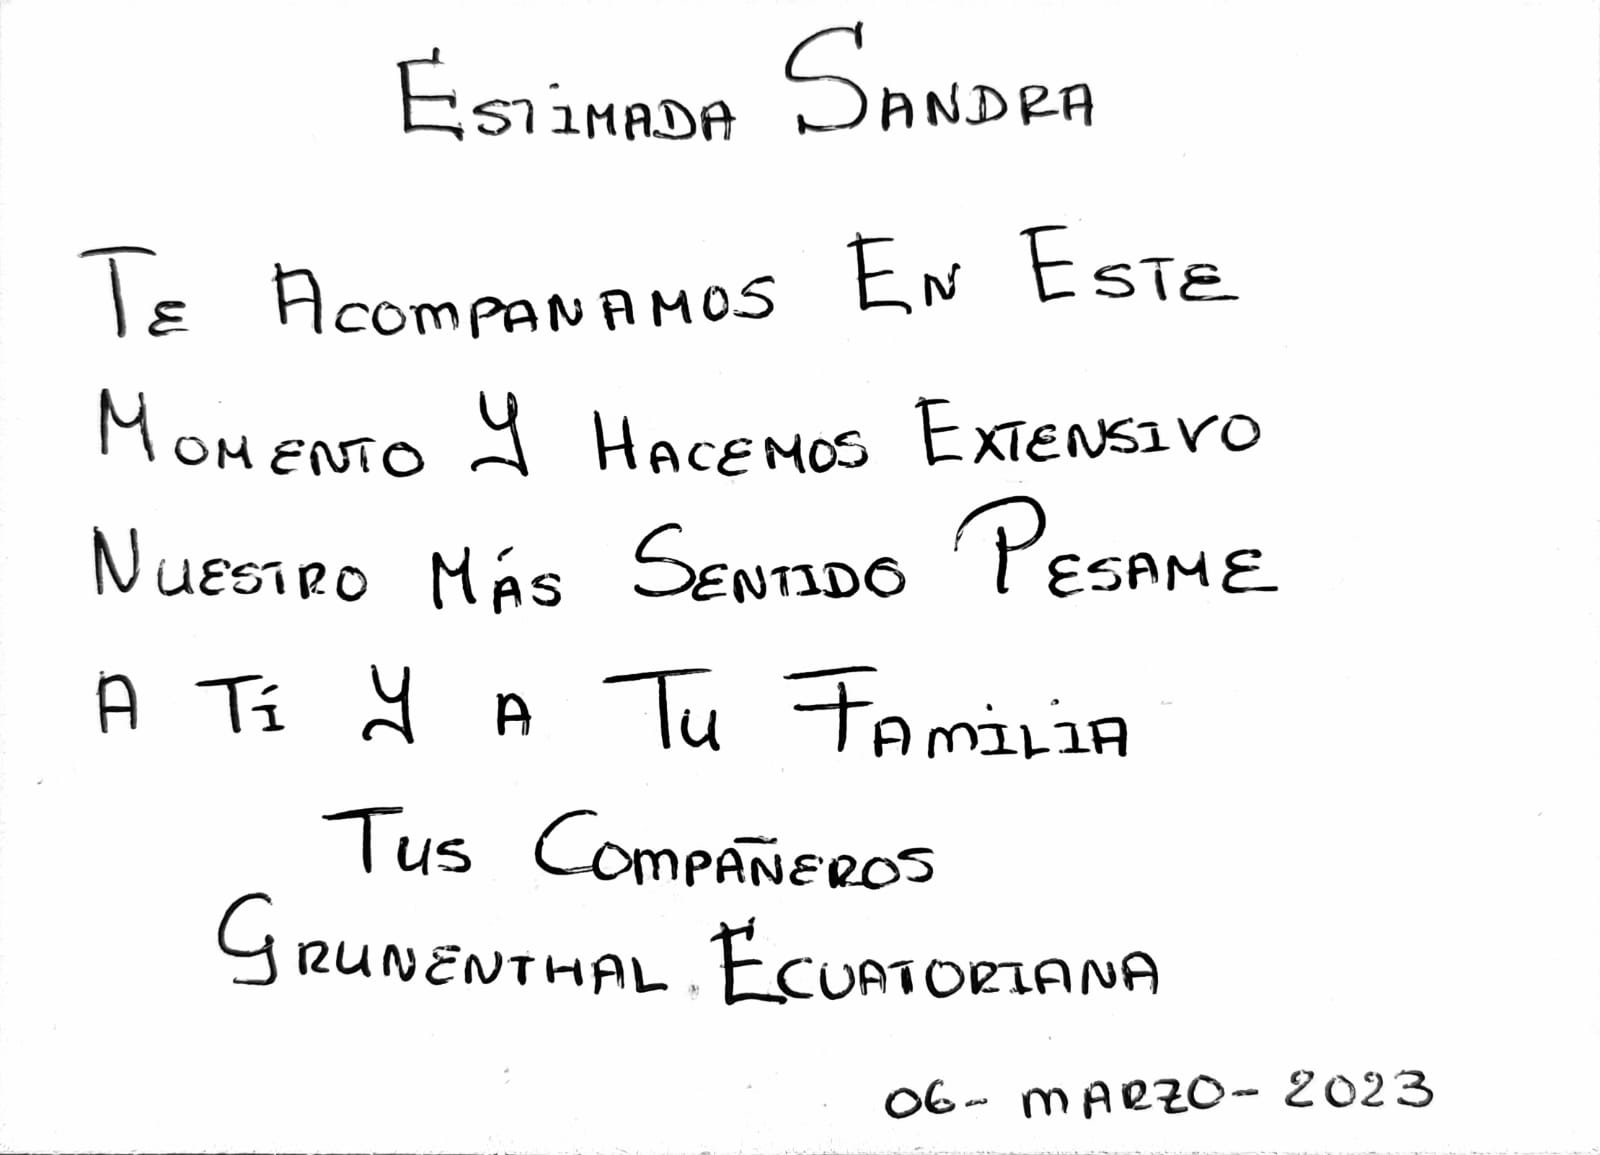 Estimada Sandra
Te Acompanamos En Este
Momento Y Hacemos Extensivo
Nuestro Más Sentido Pesame
A Tí Y A Tu Familia
Tus Compañeros
Grunenthal Ecuatoriana
06- Marzo- 2023